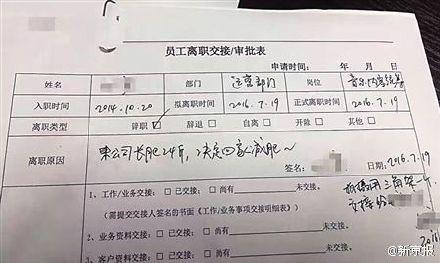 员工离职交接/审批表
申请时间： 年 月 日
姓名 部门 运营部门 岗位 音乐
入职时间 2014.10.20 拟离职时间 2016.7.19 正式离职时间 2016.7.19
离职类型 辞职 ☑ 辞退 □ 自离 □ 开除 □ 其他 □
离职原因 来公司长肥24斤，决定回家减肥～
签名： 日期：2016.7.19
1、工作/业务交接：□ 已交接；□ 尚有 未交接。
(需提交交接人签名的书面《工作/业务事项交接明细表》)
交接
2、业务资料交接：□ 已交接；□ 尚有 未交接。
3、客户资料交接：□ 已交接；□ 尚有 未交接。
2016
@新京报